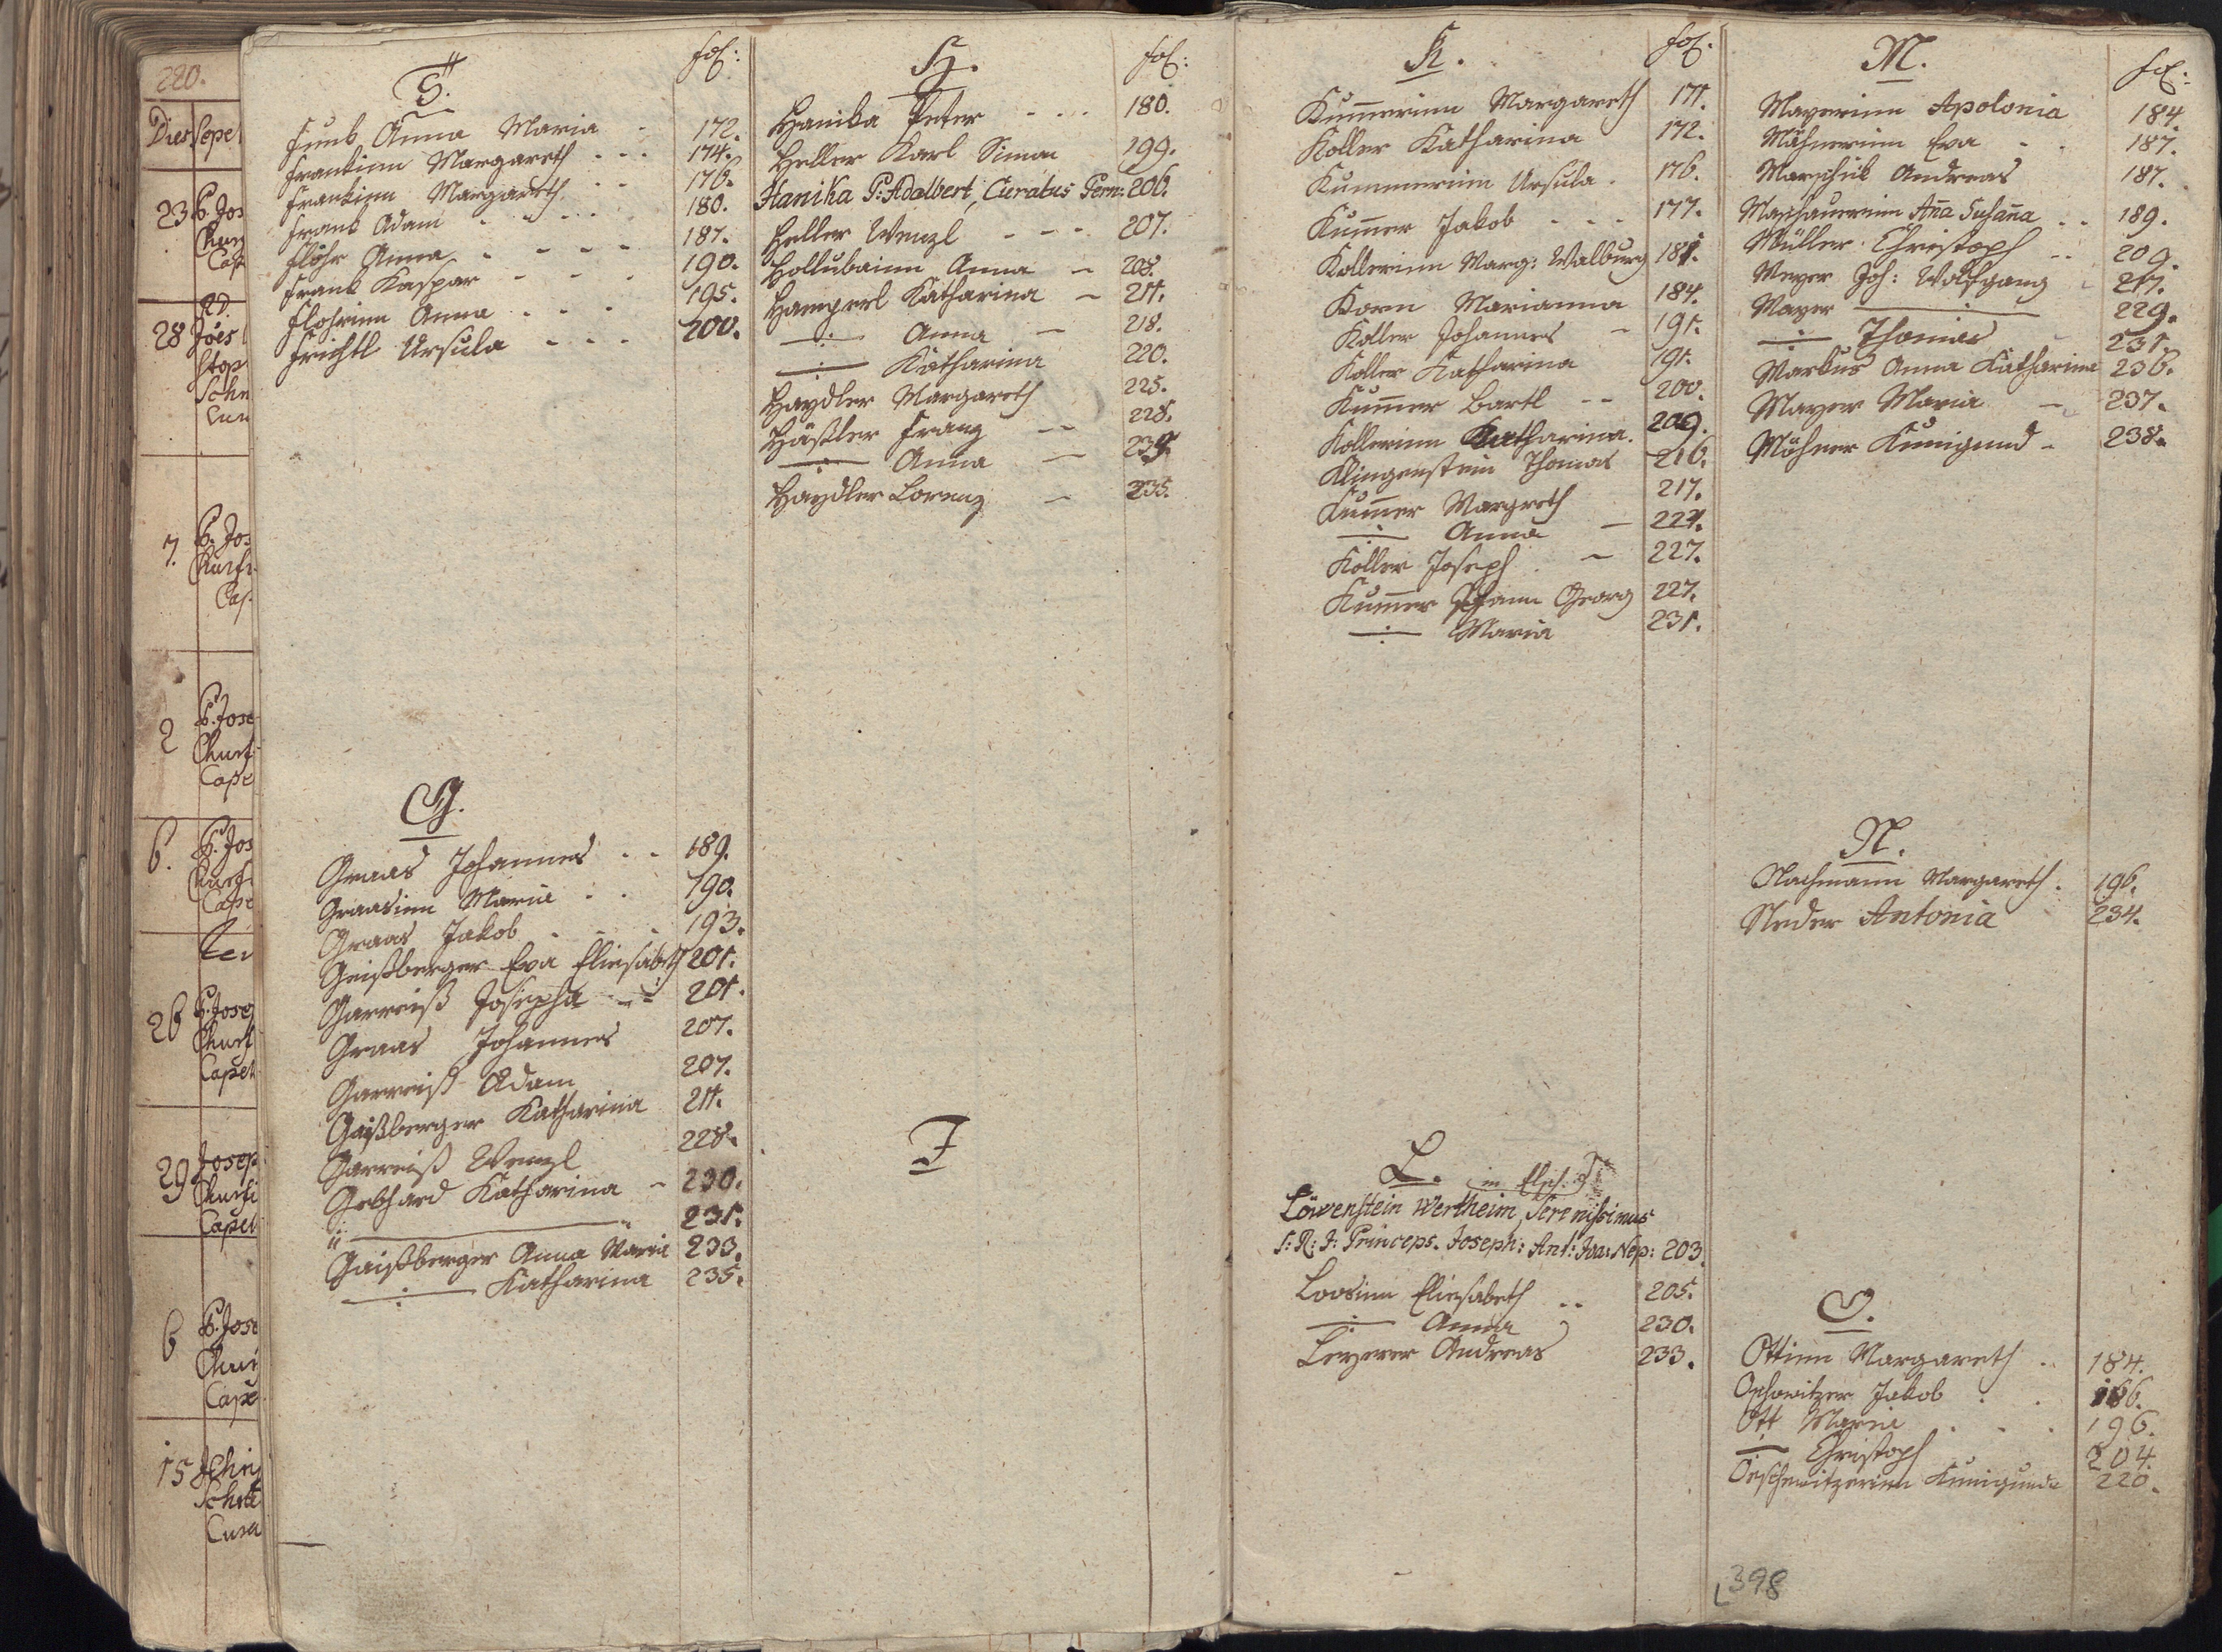 220.
Dies Sepel
23 P. Jos
Churf
Cap
28 Jões
Stop
Schn
Cur
7. P. Jos
Churf
Cap.
2 P. Jose
Churf
Cape
6. P. Jos
Churf
Cape
26 P. Josep
Churf
Capel
29 Josep
Churfi
Capel
6 P. Jose
Churf
Cape
15
Schte
Cura
F. fol:
Funk Anna Maria - 172.
Frankinn Margareth - - - 174.
Frankinn Margareth - - 176.
Frank Adam - - - - 180.
Flöhr Anna - - - - 187.
Frank Kaspar - - - 190.
Flohrinn Anna - - - 195.
Frichtl Ursula - - - 200.
G.
Graas Johannes - - 189.
Graasinn Maria - - 190.
Graas Jakob - - - 193.
Geißberger Eva Eliesabeth 201.
Garreiß Josepha - - 201.
Graas Johannes 207.
Garreiß Adam 207.
Gaißberger Katharina 211.
Garreiß Wenzl 228.
Gebhard Katharina - 230.
" ——— " 231.
Gaißberger Anna Maria 233.
—:— Katharina 235.
H. fol:
Hanika Peter - - - 180.
Heller Karl Simon 199.
Hanika P: Adalbert, Curatus Pern: 206.
Heller Wenzl - - - 207.
Hollubainn Anna - 208.
Hamperl Katharina - 211.
—:— Anna - 218.
—:— Katharina 220.
Haydler Margareth 225.
Häßler Franz - - 228.
—:— Anna - 234.
Haydler Lorenz - 235.
J
K. fol.
Kum̄erinn Margareth 171.
Koller Katharina 172.
Kummerinn Ursula - 176.
Kum̄er Jakob - - - 177.
Kollerinn Marg: Walburg 181.
Korn Marianna 184.
Koller Johannes - 191.
Koller Katharina 191.
Kum̄er Bartl - - 200.
Kollerinn Katharina. 209.
Klingenstein Thomas 216.
Kum̄er Margreth 217.
—:— Anna - 221.
Koller Joseph - 227.
Kum̄er Johann Georg 227.
—:— Maria 231.
L.
Löwenstein Wertheim, Serenissimus
S: R: J: Princeps. Joseph: Ant: Joa: Nep: 203.
Loosinn Eliesabeth - - 205.
—:— Anna 230.
Leyerer Andreas 233.
M. fol:
Mayerinn Apolonia 184
Mähnerinn Eva - - 187.
Marschik Andreas 187.
Maschauerinn An̄a Susan̄a - - 189.
Müller Christoph - - 209.
Meyer Joh: Wolfgang - 217.
Mayer —:— 229.
—:— Thomas 231.
Markus Anna Katharina 236.
Mayer Maria - 237.
Mähner Kunigund - 238.
N.
Nachmann Margareth. 196.
Neder Antonia 234.
O.
Ottinn Margareth - - 184.
Oschwitzer Jakob - - 186.
Ott Maria - - - 196.
—:— Christoph 204.
Oeschwitzerinn Kunigunda 220.
398